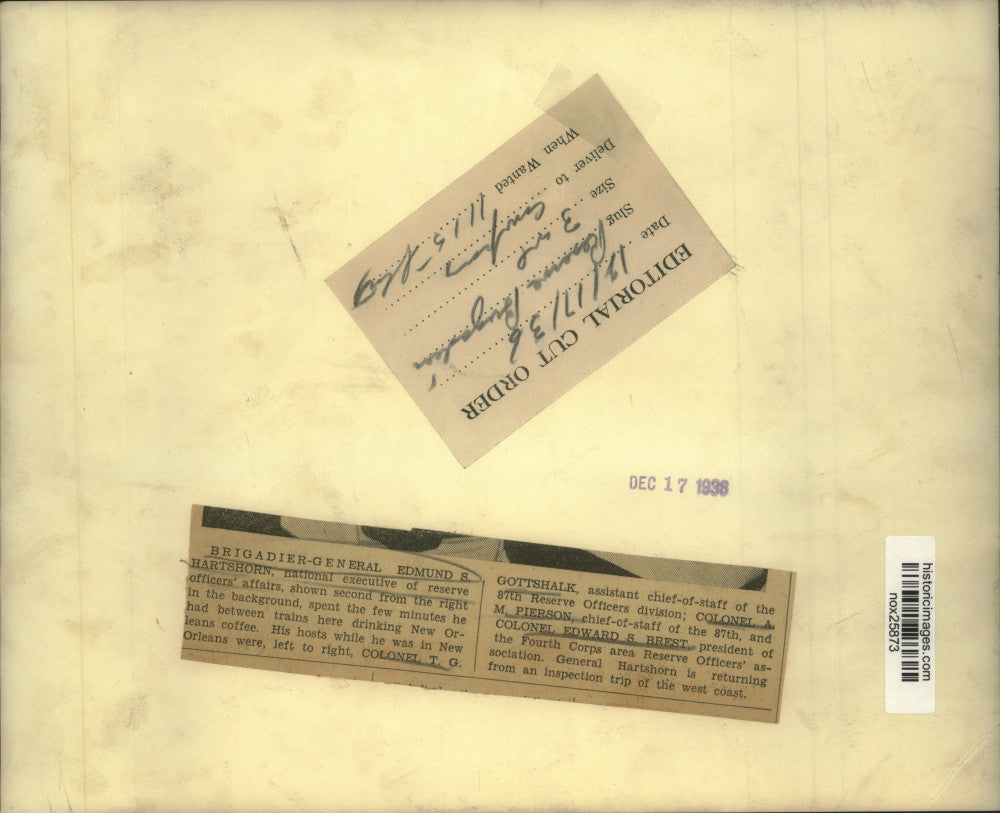 EDITORIAL CUT ORDER
Date 12/17/36
Slug Reserve
Size 3 col
Deliver to
When Wanted 11 15
DEC 17 1936
BRIGADIER-GENERAL EDMUND S.
HARTSHORN, national executive of reserve
officers' affairs, shown second from the right
in the background, spent the few minutes he
had between trains here drinking New Or-
leans coffee. His hosts while he was in New
Orleans were, left to right, COLONEL T. G.
GOTTSHALK, assistant chief-of-staff of the
87th Reserve Officers division; COLONEL A.
M. PIERSON, chief-of-staff of the 87th, and
COLONEL EDWARD S. BREST, president of
the Fourth Corps area Reserve Officers' as-
sociation. General Hartshorn is returning
from an inspection trip of the west coast.
historicimages.com
nox25873